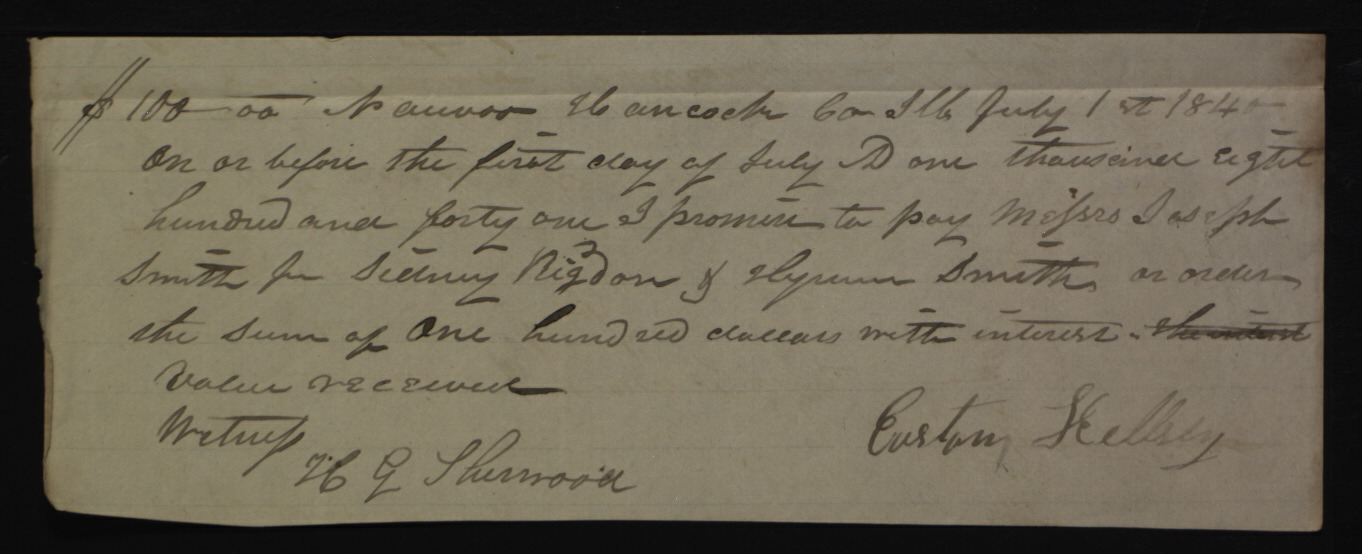 $100 00 Nauvoo Hancock Co Ills July 1st 1840
On or before the first day of July AD one thousand eight
hundred and forty one I promise to pay Messrs Joseph
Smith Jr Sidney Rigdon & Hyrum Smith, or order
the sum of One hundred dollars with interest.
Value received
Witness
Easton Kelsey
H G Sherwood